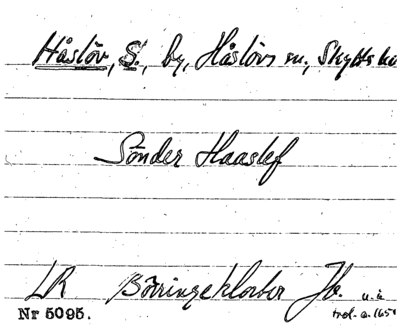 Håslöv, S., by, Håslövs sn., Skytts hd
Sönder Haaslef
LR Börringekloster Jb. u.å
Nr 5095. trol. a. 1650